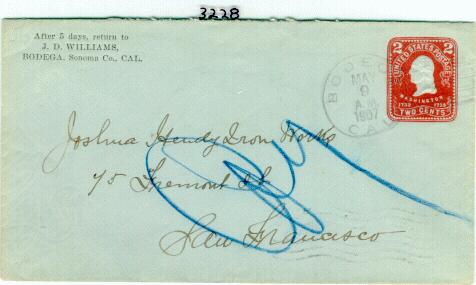 3228
After 5 days, return to
J. D. WILLIAMS,
BODEGA, Sonoma Co., CAL.
2 2
UNITED STATES POSTAGE
WASHINGTON
1732 1799
TWO CENTS
BODEGA
MAY
9
A.M.
1907
CAL
Joshua Hendy Iron Works
75 Fremont St
San Francisco